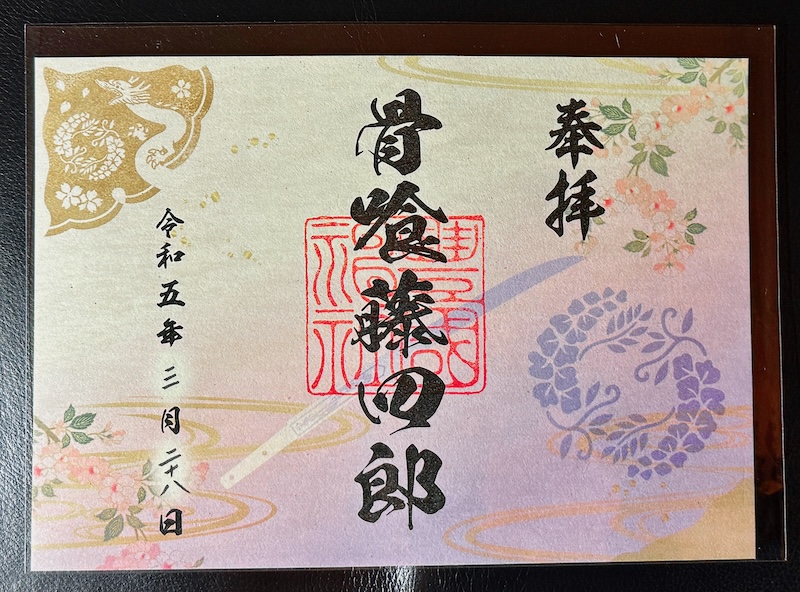 奉拝
骨喰藤四郎
令和五年三月二十八日